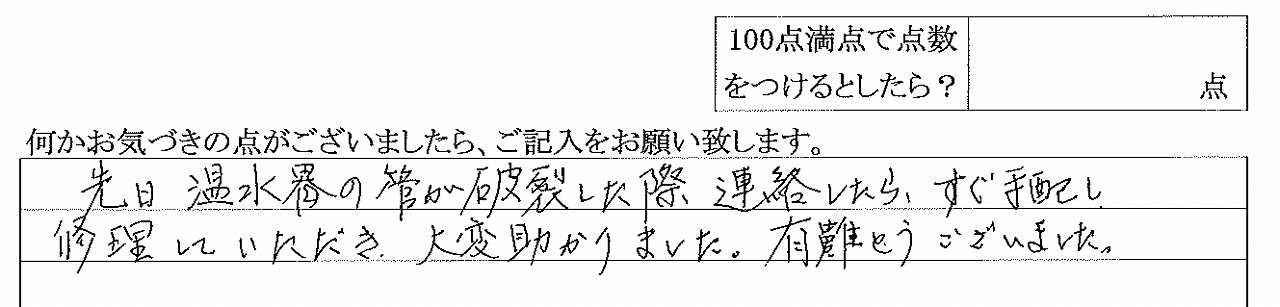 100点満点で点数
をつけるとしたら？
点
何かお気づきの点がございましたら、ご記入をお願い致します。
先日 温水器の管が破裂した際、連絡したら、すぐ手配し
修理していただき、大変助かりました。有難とうございました。